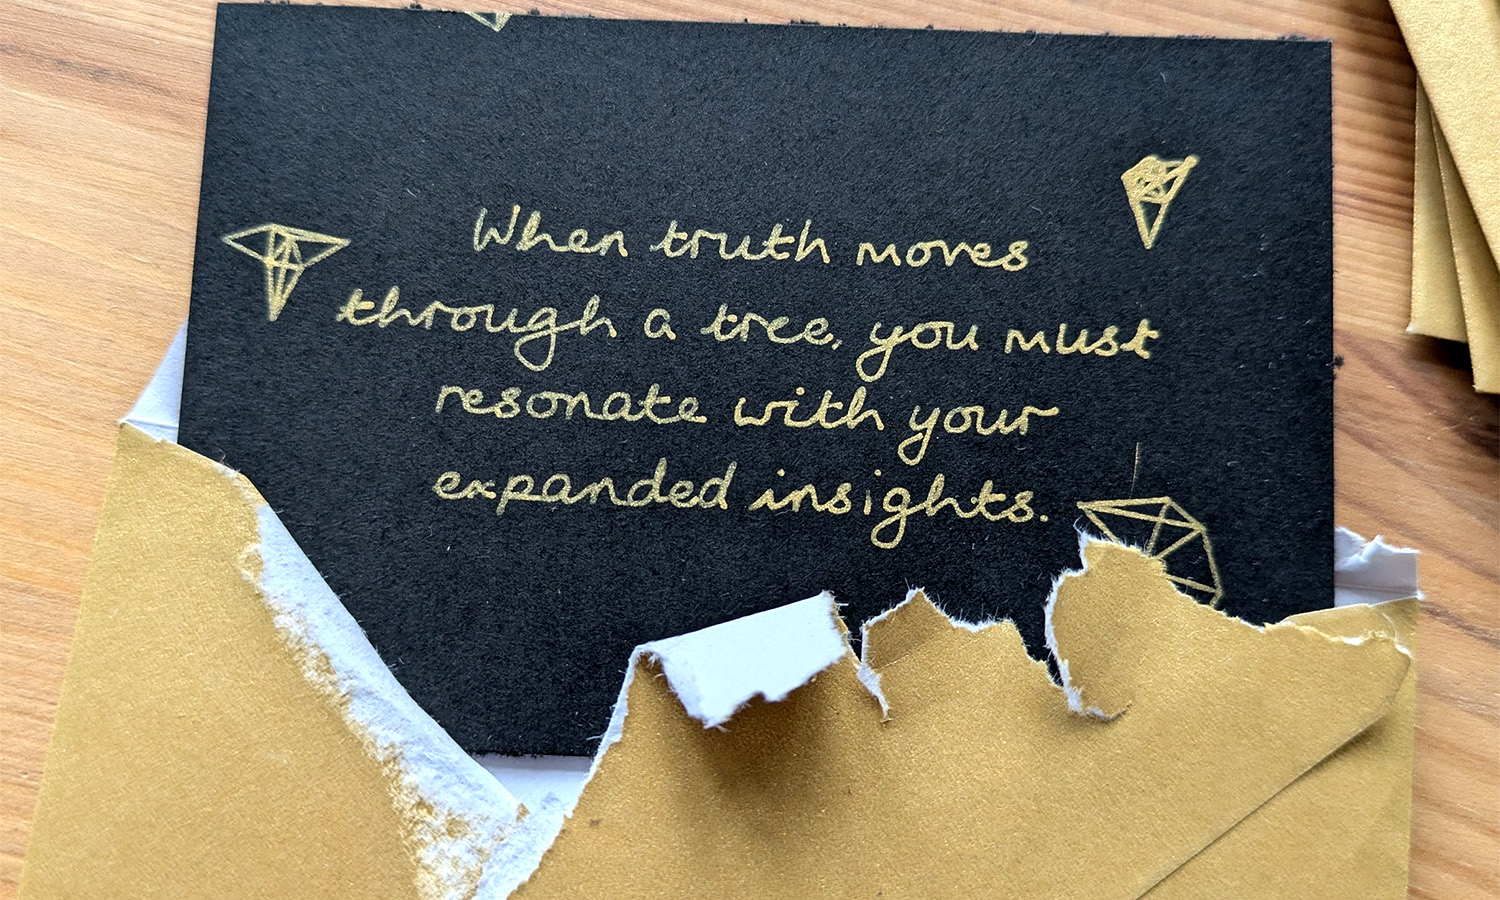 When truth moves
through a tree, you must
resonate with your
expanded insights.